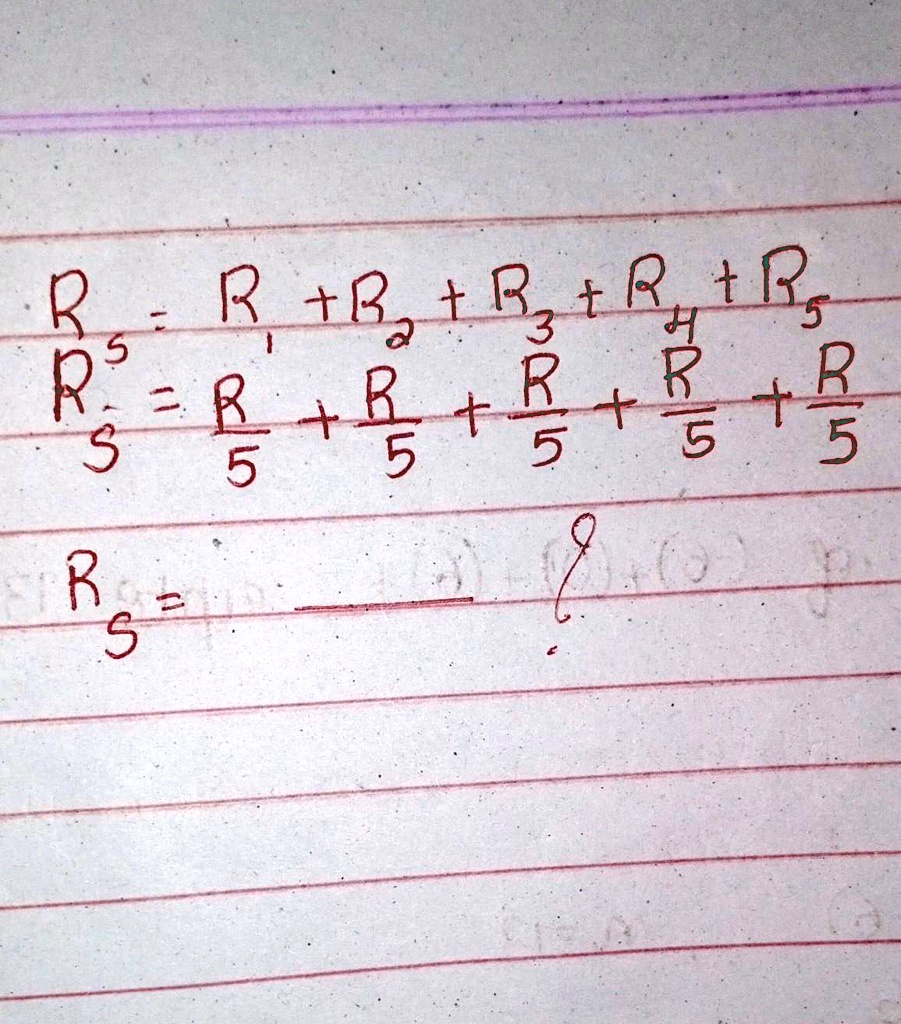 R_s = R_1 + R_2 + R_3 + R_4 + R_5
R_s = R/5 + R/5 + R/5 + R/5 + R/5
R_s = ______ ?